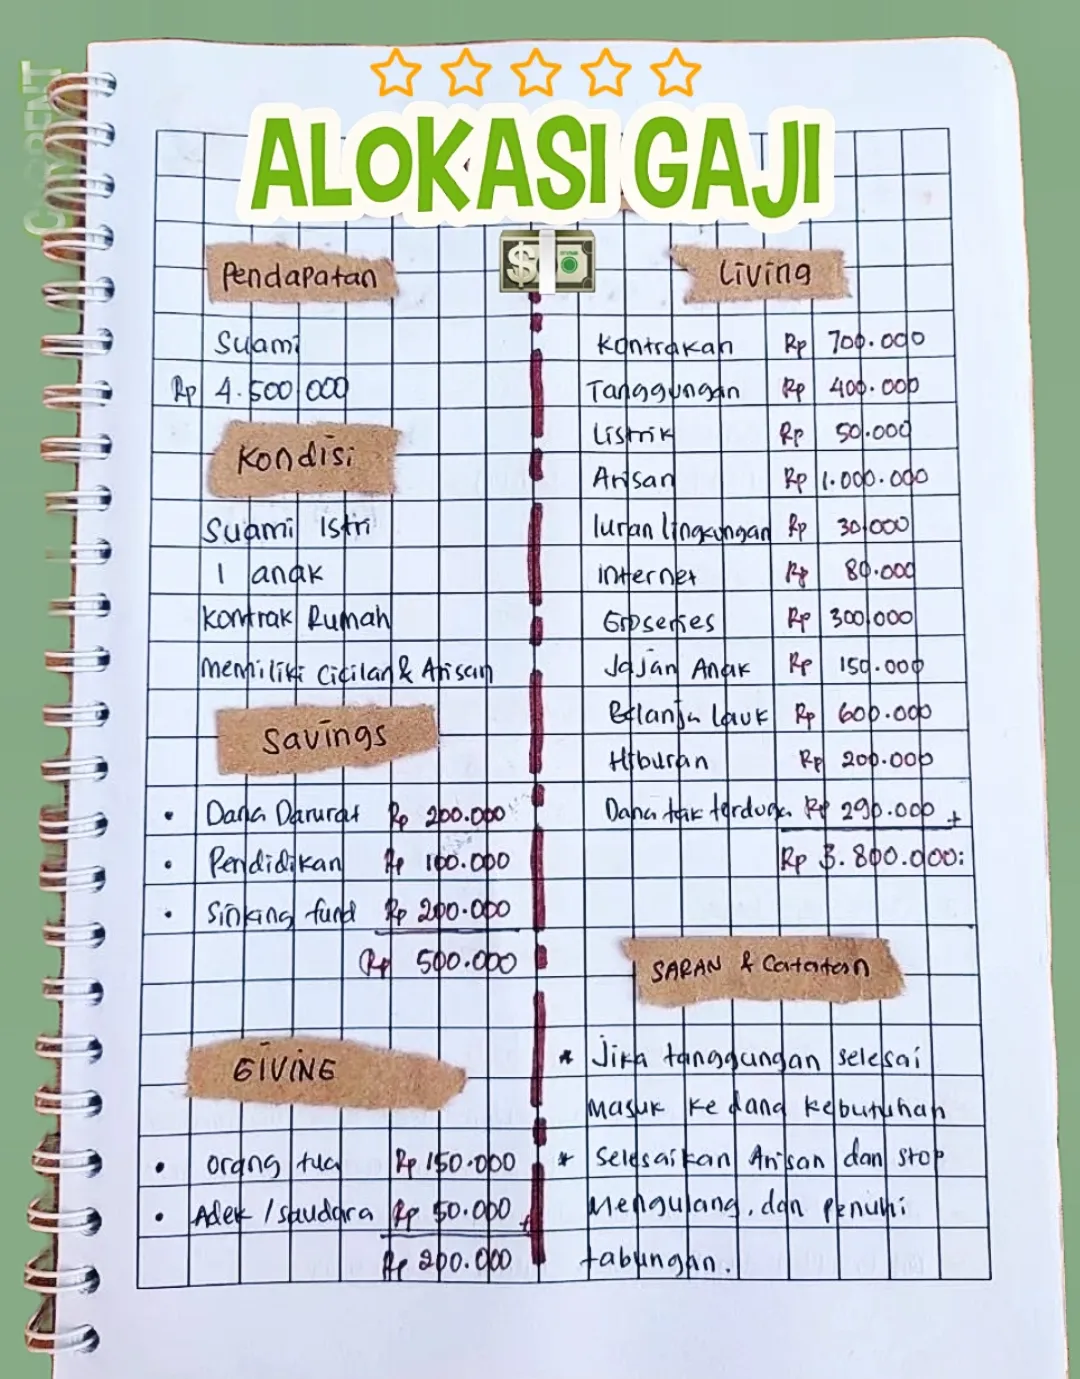 ALOKASI GAJI
Pendapatan
Suami
Rp 4.500.000
Kondisi
Suami Istri
1 anak
Kontrak Rumah
Memiliki Cicilan & Arisan
Savings
• Dana Darurat Rp 200.000
• Pendidikan Rp 100.000
• Sinking fund Rp 200.000
Rp 500.000
GIVING
• orang tua Rp 150.000
• Adek / saudara Rp 50.000 +
Rp 200.000
Living
Kontrakan Rp 700.000
Tanggungan Rp 400.000
Listrik Rp 50.000
Arisan Rp 1.000.000
Iuran lingkungan Rp 30.000
Internet Rp 80.000
Groseries Rp 300.000
Jajan Anak Rp 150.000
Belanja lauk Rp 600.000
Hiburan Rp 200.000
Dana tak terduga Rp 290.000 +
Rp 3.800.000:
SARAN & Catatan
* Jika tanggungan selesai
Masuk ke dana kebutuhan
* Selesaikan Arisan dan stop
Mengulang, dan penuhi
tabungan.